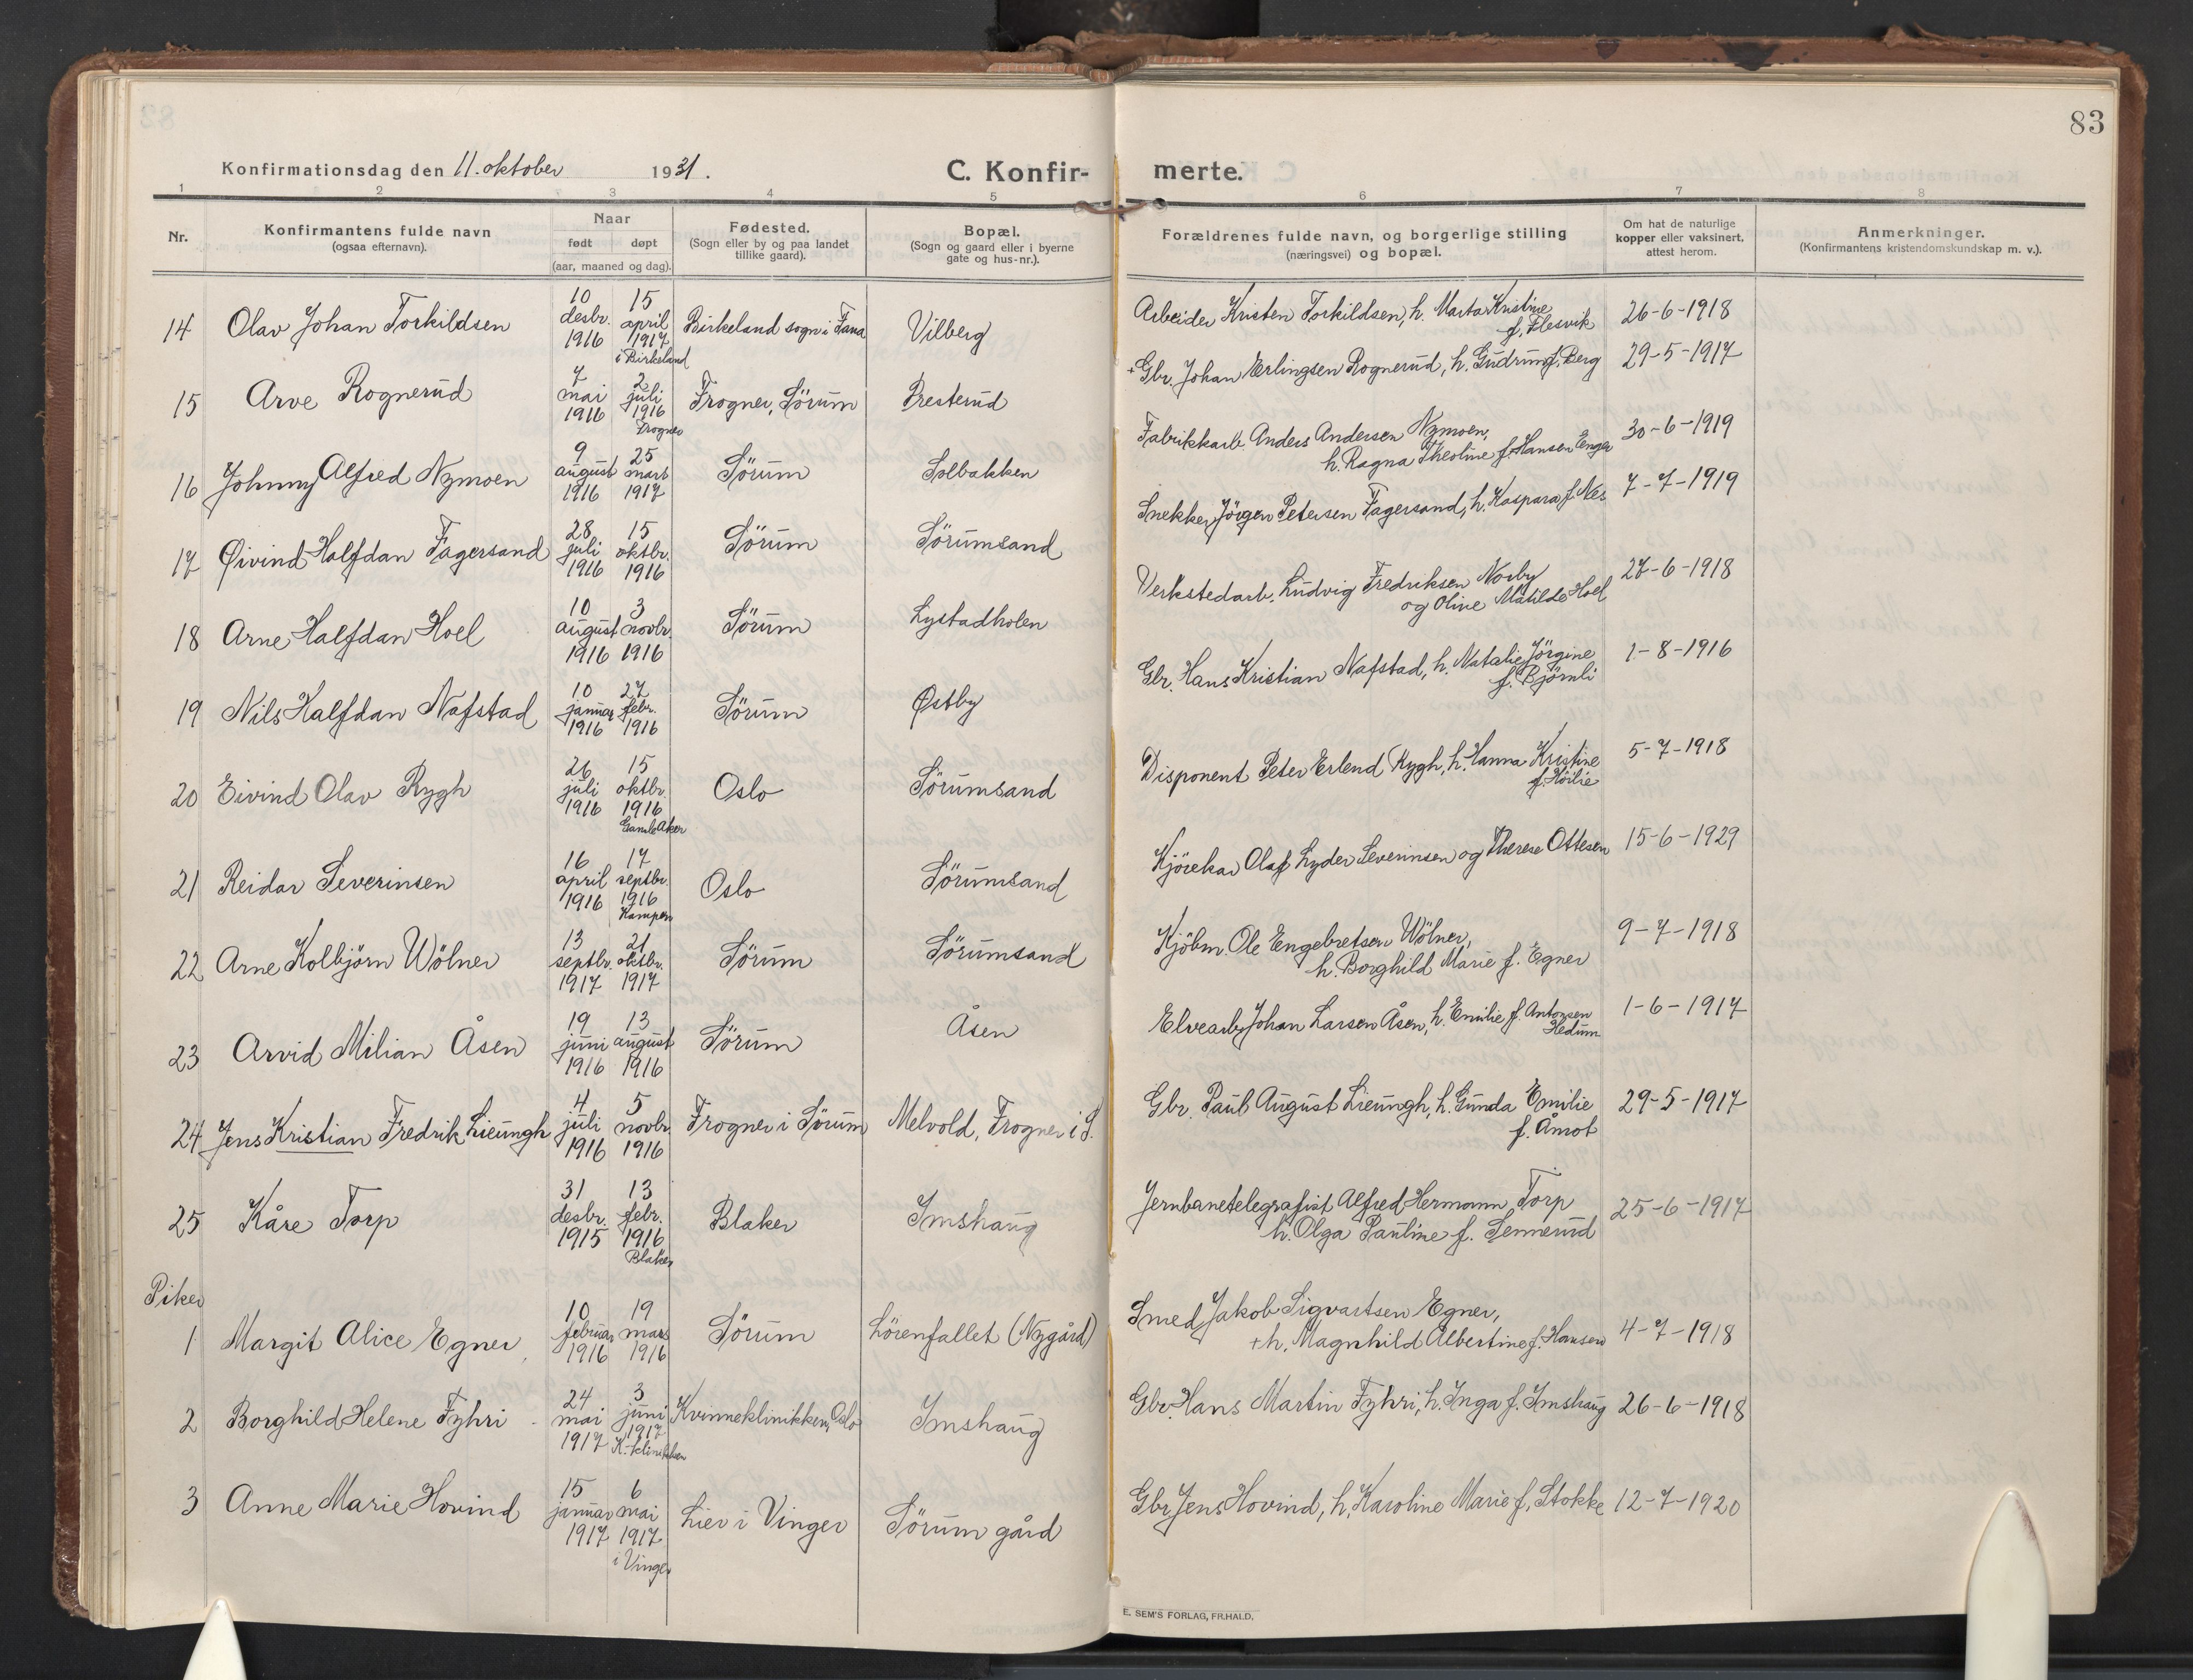 83
Konfirmationsdag den 11. oktober 1931.
C. Konfir-merte.
1 2 3 4 5 6 7 8
Nr.
Konfirmantens fulde navn
(ogsaa efternavn).
Naar
født døpt
(aar, maaned og dag).
Fødested.
(Sogn eller by og paa landet
tillike gaard).
Bopæl.
(Sogn og gaard eller i byerne
gate og hus-nr.).
Forældrenes fulde navn, og borgerlige stilling
(næringsvei) og bopæl.
Om hat de naturlige
kopper eller vaksinert,
attest herom.
Anmerkninger.
(Konfirmantens kristendomskundskap m. v.).
14 Olav Johan Torkildsen
10 desbr. 1916
15 april 1917 i Birkeland
Birkeland sogn i Fana
Vilberg
Arbeider Kristen Torkildsen, h. Marta Kristine
f. Flesvik
26-6-1918
15 Arve Rognerud
7 mai 1916
2 juli 1916 Frogner
Frogner, Sörum
Presterud
+Gbr. Johan Erlingsen Rognerud, h. Gudrun f. Berg
29-5-1917
16 Johnny Alfred Nymoen
9 august 1916
25 mars 1917
Sörum
Solbakken
Fabrikkarb. Anders Andersen Nymoen,
h. Ragna Theoline f. Hansen Enga
30-6-1919
17 Øivind Halfdan Fagersand
28 juli 1916
15 oktbr. 1916
Sörum
Sörumsand
Snekker Jörgen Petersen Fagersand, h. Kaspara f. Nes
7-7-1919
18 Arne Halfdan Hoel
10 august 1916
3 novbr. 1916
Sörum
Lystadholen
Verkstedarb. Ludvig Fredriksen Norby
og Oline Matilde Hoel
27-6-1918
19 Nils Halfdan Nafstad
10 januar 1916
27 febr. 1916
Sörum
Østby
Gbr. Hans Kristian Nafstad, h. Natalie Jörgine
f. Björnli
1-8-1916
20 Eivind Olav Rygh
26 juli 1916
15 oktbr. 1916 Gamle Aker
Oslo
Sörumsand
Disponent Peter Erlend Rygh, h. Hanna Kristine
f. Höilie
5-7-1918
21 Reidar Severinsen
16 april 1916
17 septbr. 1916 Kampen
Oslo
Sörumsand
Kjörekar Olaf Lyder Severinsen og Therese Ottesen
15-6-1929
22 Arne Kolbjörn Wölner
13 septbr. 1917
21 oktbr. 1917
Sörum
Sörumsand
Kjöbm. Ole Engebretsen Wölner,
h. Borghild Marie f. Egner
9-7-1918
23 Arvid Milian Åsen
19 juni 1916
13 august 1916
Sörum
Åsen
Elvearb. Johan Larsen Åsen, h. Emilie f. Antonsen
Hedum
1-6-1917
24 Jens Kristian Fredrik Lieungh
4 juli 1916
5 novbr. 1916
Frogner i Sörum
Melvold, Frogner i S.
Gbr. Paul August Lieungh, h. Gunda Emilie
f. Åmot
29-5-1917
25 Kåre Torp
31 desbr. 1915
13 febr. 1916 Blaker
Blaker
Imshaug
Jernbanetelegrafist Alfred Hermann Torp
h. Olga Pauline f. Sennerud
25-6-1917
Piker
1 Margit Alice Egner
10 februar 1916
19 mars 1916
Sörum
Lörenfallet (Nygård)
Smed Jakob Sigvartsen Egner,
+h. Magnhild Albertine f. Hansen
4-7-1918
2 Borghild Helene Fyhri
24 mai 1917
3 juni 1917 K.-klinikken
Kvinneklinikken, Oslo
Imshaug
Gbr. Hans Martin Fyhri, h. Inga f. Imshaug
26-6-1918
3 Anne Marie Hovind
15 januar 1917
6 mai 1917 i Vinger
Lier i Vinger
Sörum gård
Gbr. Jens Hovind, h. Karoline Marie f. Stokke
12-7-1920
E. SEM'S FORLAG, FR.HALD.